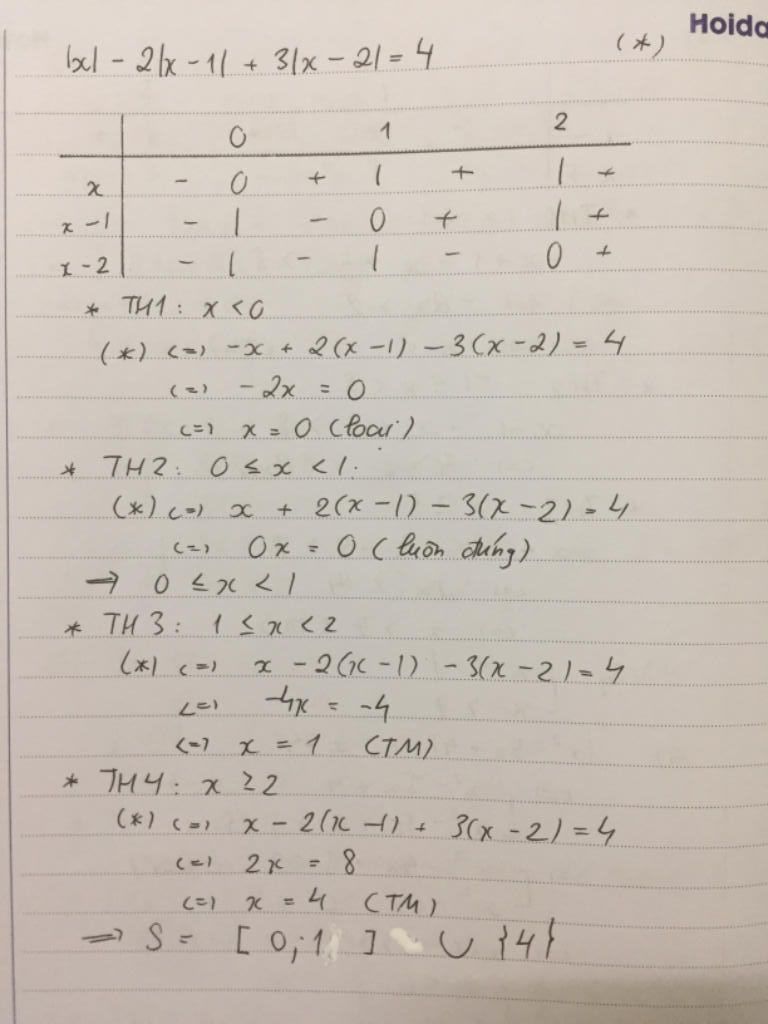 Hoida
|x| - 2|x - 1| + 3|x - 2| = 4 (*)
0 1 2
x - 0 + | + | +
x - 1 - | - 0 + | +
x - 2 - | - | - 0 +
* TH1: x < 0
(*) <=> -x + 2(x - 1) - 3(x - 2) = 4
<=> -2x = 0
<=> x = 0 (loại)
* TH2: 0 ≤ x < 1:
(*) <=> x + 2(x - 1) - 3(x - 2) = 4
<=> 0x = 0 (luôn đúng)
→ 0 ≤ x < 1
* TH3: 1 ≤ x < 2
(*) <=> x - 2(x - 1) - 3(x - 2) = 4
<=> -4x = -4
<=> x = 1 (TM)
* TH4: x ≥ 2
(*) <=> x - 2(x - 1) + 3(x - 2) = 4
<=> 2x = 8
<=> x = 4 (TM)
=> S = [0; 1] ∪ {4}